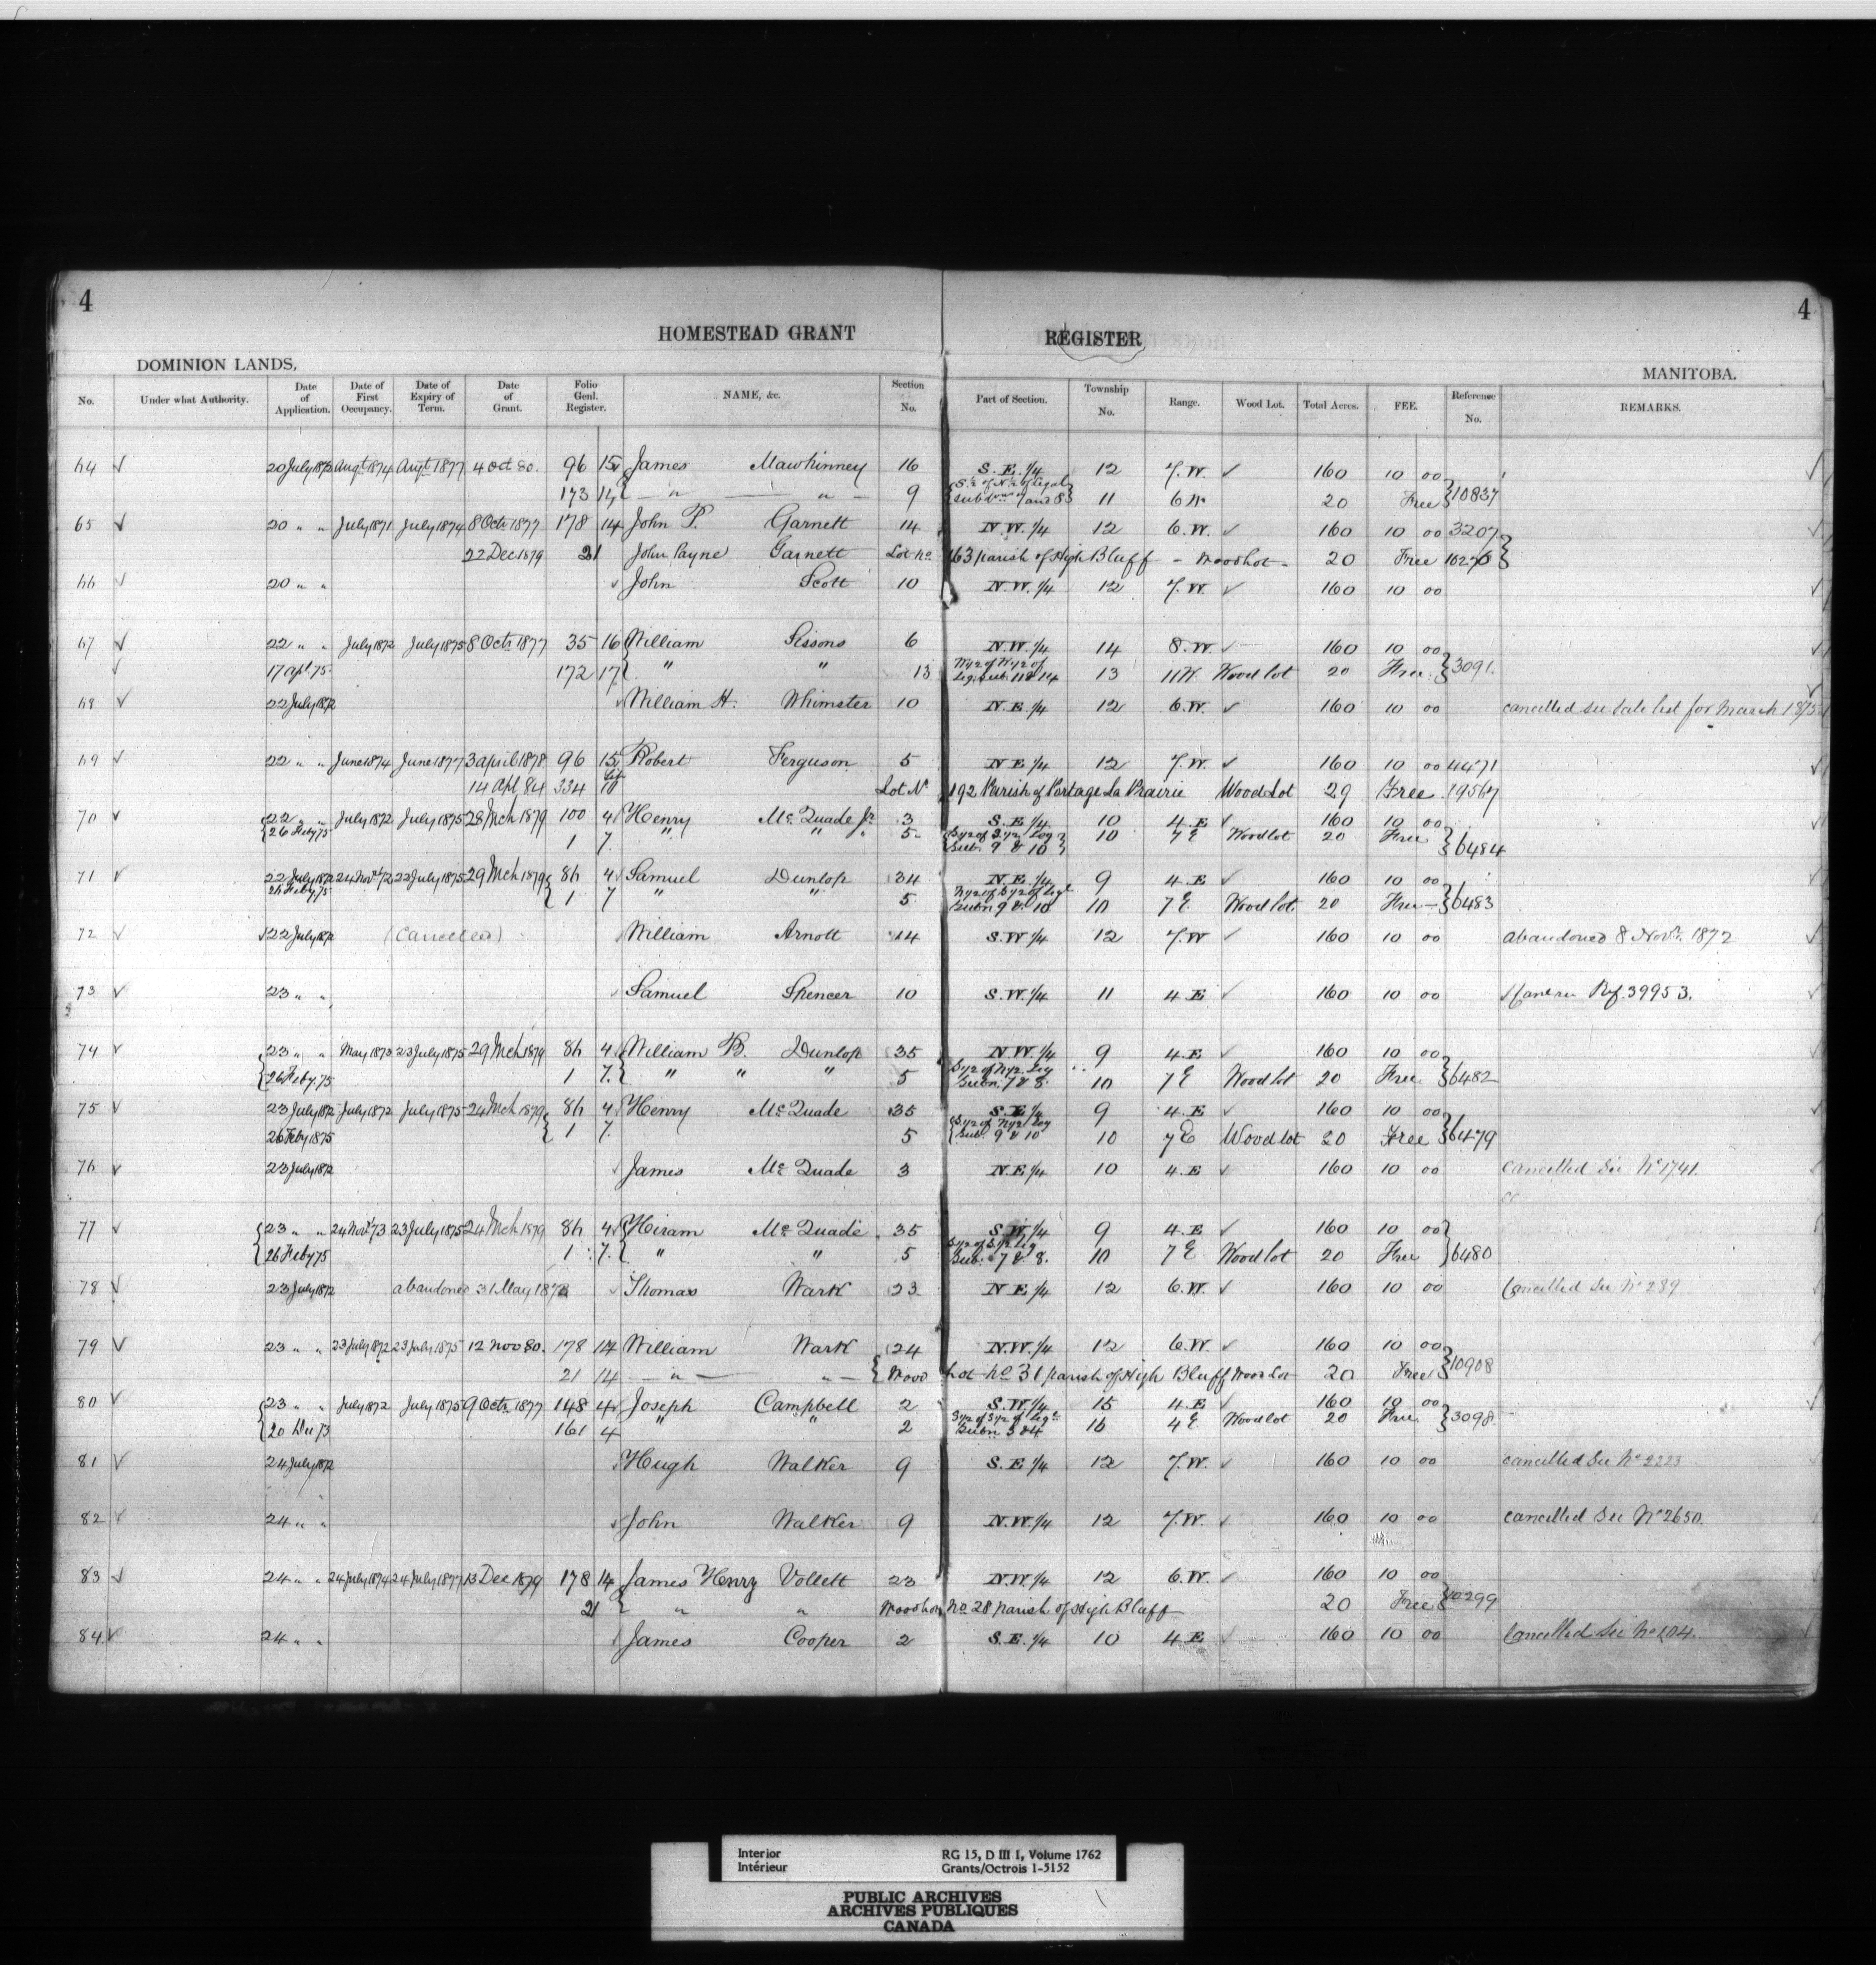 4
4
HOMESTEAD GRANT REGISTER
DOMINION LANDS, MANITOBA.
No. Under what Authority. Date of Application. Date of First Occupancy. Date of Expiry of Term. Date of Grant. Folio Genl. Register. NAME, &c. Section No. Part of Section. Township No. Range. Wood Lot. Total Acres. FEE. Reference No. REMARKS.
64 20 July 1872 Augt 1874 Augt 1877 4 Oct 80. 96 15 James Mawhinney 16 S.E. 1/4 12 7.W. 160 10 00
173 14 " " 9 S½ of N½ of Legal Subdns 7 and 8 11 6 W 20 Free 10837
65 20 " " July 1871 July 1874 8 Octr 1877 178 14 John P. Garnett 14 N.W. 1/4 12 6.W. 160 10 00 3207
22 Dec 1879 21 John Payne Garnett Lot No. 163 parish of High Bluff - Wood Lot - 20 Free
66 20 " " John Scott 10 N.W. 1/4 12 7.W. 160 10 00
67 22 " " July 1872 July 1875 8 Octr 1877 35 16 William Sissons 6 N.W. 1/4 14 8.W. 160 10 00
17 Apl. 75. 172 17 " " 13 W 1/2 of W 1/2 of Leg. Sub. 11 & 14 13 11 W. Wood lot 20 Free 3091.
68 22 July 1872 William H. Whimster 10 N.E. 1/4 12 6.W. 160 10 00 cancelled see Sale list for March 1875.
69 22 " " June 1874 June 1877 3 april 1878 96 15 Robert Ferguson 5 N E 1/4 12 7.W. 160 10 00 4471
14 Apl 84 334 Lot No 192 Parish of Portage La Prairie Wood Lot 29 Free 19567
70 22 " " July 1872 July 1875 28 Mch 1879 100 4 Henry Mc Quade Jr 3 S.E 1/4 10 4.E 160 10 00
26 Feby 75 1 7. " " " 5. S 1/2 of S 1/2 Leg Sub. 9 & 10 10 7 E Wood lot 20 Free 6484
71 22 July 1872 24 Novr 72 22 July 1875 29 Mch 1879 86 4 Samuel Dunlop 34 N.E. 1/4 9 4.E 160 10 00
26 Feby 75 1 7 " " 5 N 1/2 of S 1/2 of Legl Subn 9 & 10 10 7 E. Wood lot. 20 Free - 6483
72 22 July 1872 (Cancelled) William Arnott 14 S.W 1/4 12 7.W 160 10 00 abandoned 8 Novr. 1872
73 23 " " Samuel Spencer 10 S.W. 1/4 11 4 E 160 10 00 Ref. 39953.
74 23 " " May 1873 23 July 1875 29 Mch 1879 86 4 William B. Dunlop 35 N.W. 1/4 9 4.E 160 10 00
26 Feby. 75 1 7. " " " 5 S 1/2 of N 1/2 Leg Subn. 7 & 8. 10 7 E Wood lot 20 Free 6482
75 23 July 1872 July 1872 July 1875 24 Mch 1879 86 4 Henry Mc Quade 35 S.E 1/4 9 4.E 160 10 00
26 Feby 1875 1 7. 5 S 1/2 of N 1/2 Leg Sub. 9 & 10 10 7 E Wood lot 20 Free 6479
76 23 July 1872 James Mc Quade 3 N.E 1/4 10 4.E 160 10 00 Cancelled See No 1741.
77 23 " " 24 Novr 73 23 July 1875 24 Mch 1879 86 4 Hiram Mc Quade 35 S.W 1/4 9 4.E 160 10 00
26 Feby 75 1 7. " " 5 S 1/2 of S 1/2 Leg Sub. 7 & 8. 10 7 E Wood lot 20 Free 6480
78 23 July 1872 abandoned 31 May 1873 Thomas Wark 23 N E 1/4 12 6.W. 160 10 00 Cancelled See No 289
79 23 " " 23 July 1872 23 July 1875 12 Nov 80. 178 14 William Wark 24 N.W. 1/4 12 6.W. 160 10 00
21 14 " " Wood Lot No 31 parish of High Bluff Wood Lot 20 Free 10908
80 23 " " July 1872 July 1875 9 Octr 1877 148 4 Joseph Campbell 2 S.W. 1/4 15 4.E 160 10 00
20 Dec 73 161 4 " " 2 S 1/2 of S 1/2 of Legl Subn 3 & 4 16 4 E Wood lot 20 Free 3098
81 24 July 1872 Hugh Walker 9 S.E 1/4 12 7.W. 160 10 00 cancelled See No 2223
82 24 " " John Walker 9 N.W. 1/4 12 7.W. 160 10 00 cancelled See No 2650.
83 24 " " 24 July 1874 24 July 1877 13 Dec 1879 178 14 James Henry Vollett 23 N.W. 1/4 12 6.W. 160 10 00
21 " " Wood Lot No 28 parish of High Bluff 20 Free 10299
84 24 " " James Cooper 2 S.E. 1/4 10 4 E 160 10 00 Cancelled See No 104.
Interior
Intérieur
RG 15, D III 1, Volume 1762
Grants/Octrois 1-5152
PUBLIC ARCHIVES
ARCHIVES PUBLIQUES
CANADA